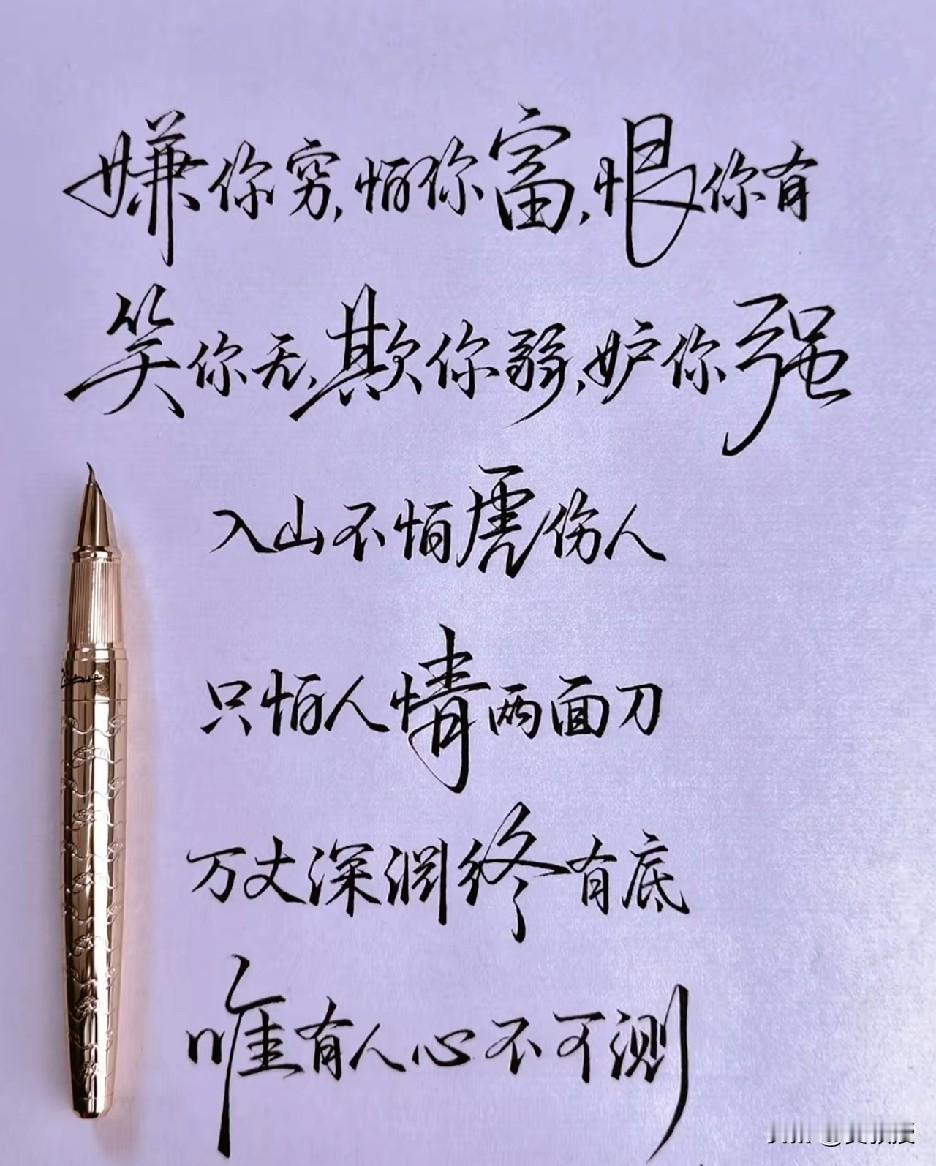 嫌你穷,怕你富,恨你有
笑你无,欺你弱,妒你强
入山不怕虎伤人
只怕人情两面刀
万丈深渊终有底
唯有人心不可测